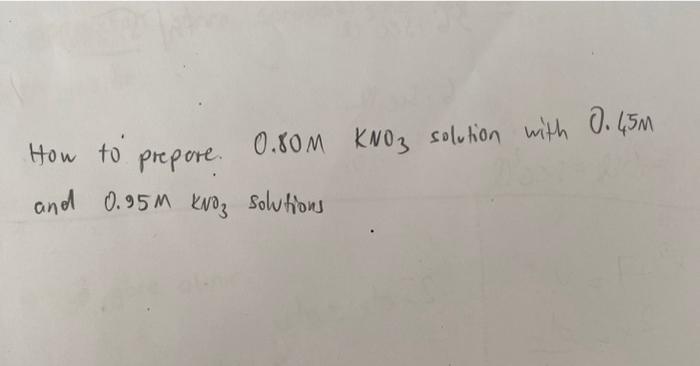 How to prepare. 0.80M KNO3 solution with 0.45M
and 0.95M KNO3 solutions